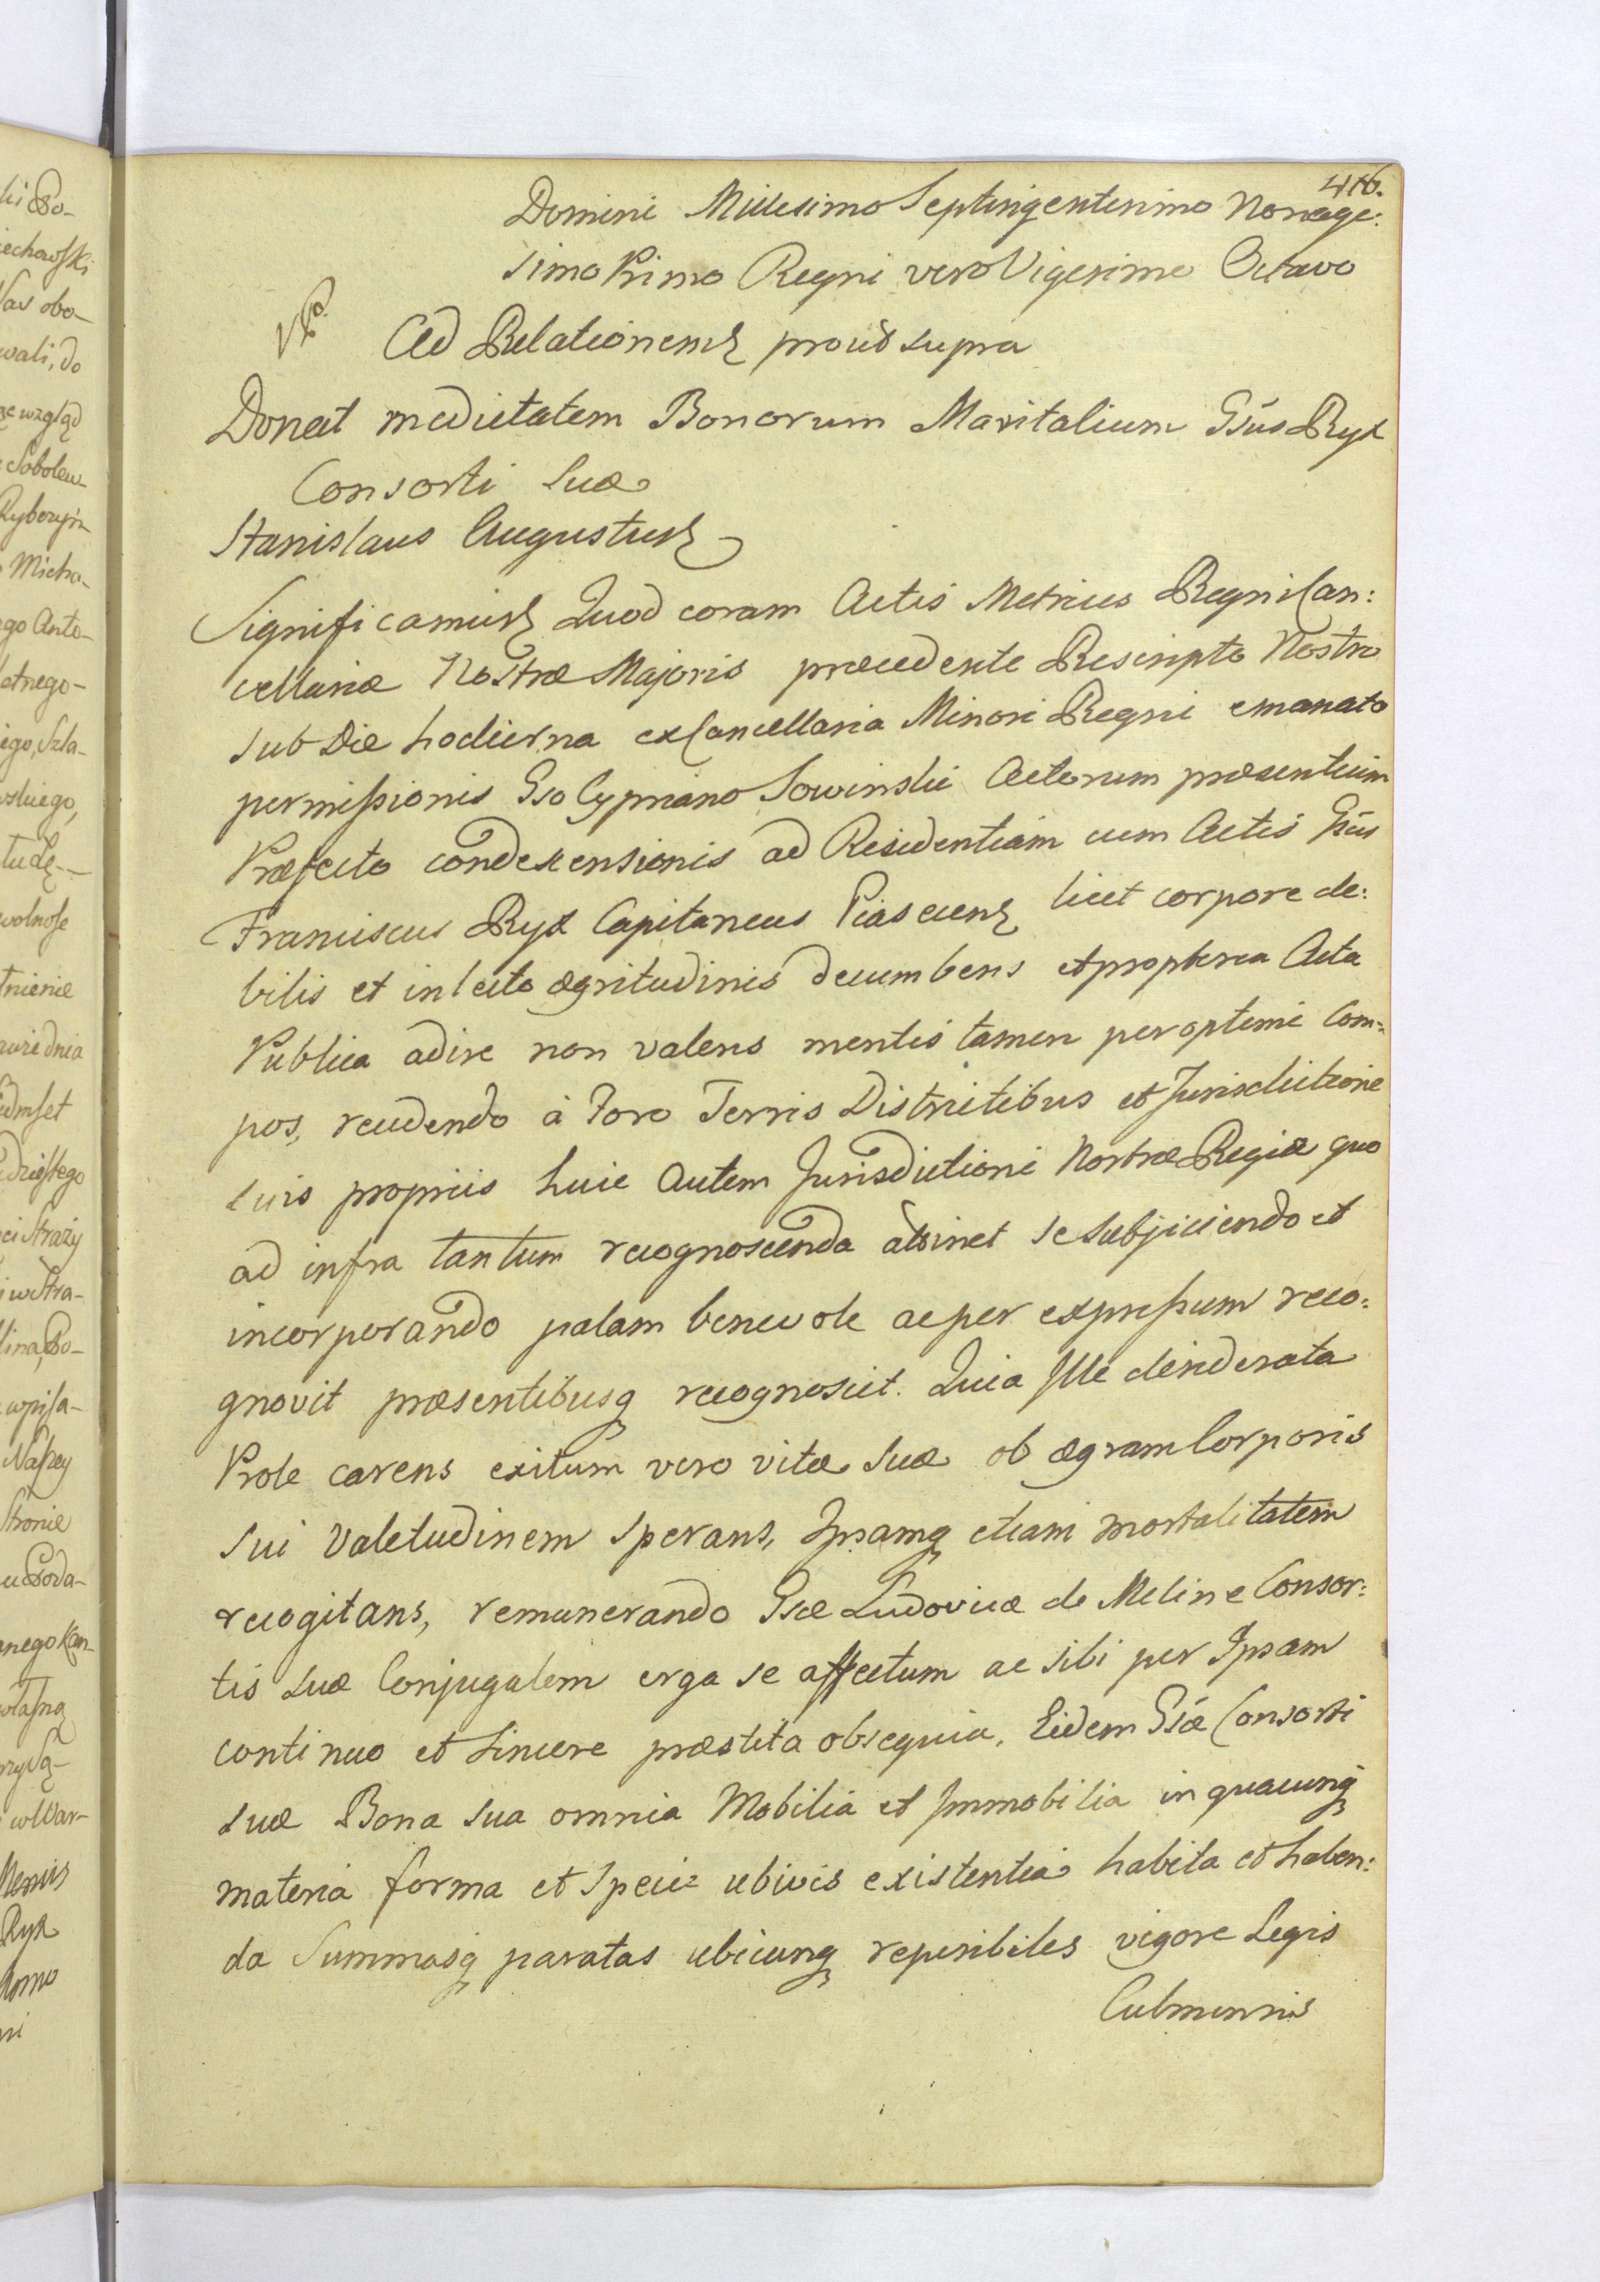 416.
Domini Millesimo Septingentesimo Nonage:
simo Primo Regni vero Vigesimo Octavo
Ad Relationem prout supra
Donat medietatem Bonorum Maritalium Gsūs Ryx
Consorti Suæ
Stanislaus Augustus
Significamus Quod coram Actis Metrices Regni Can:
cellariæ Nostræ Majoris præcedente Rescripto Nostro
sub Die hodierna ex Cancellaria Minori Regni emanato
permissionis Gso Cypriano Sowinski Actorum præsentium
Præfecto condescensionis ad Residentiam cum Actis Gsūs
Franciscus Ryx Capitaneus Piasecens licet corpore de:
bilis et in lecto ægritudinis decumbens et propterea Acta
Publica adire non valens mentis tamen per optime Com:
pos, recedendo à Foro Terris Districtibus et Jurisdictione
suis propriis huic autem Jurisdictioni Nostræ Regiæ quo
ad infra tantum recognoscenda attinet se subjiciendo et
incorporando palam benevole ac per expressum reco:
gnovit præsentibusq recognoscit. Quia Ille desiderata
Prole carens exitum vero vitæ suæ ob ægram Corporis
sui Valetudinem sperans, Ipsamq etiam mortalitatem
recogitans, remunerando Gsæ Ludovicæ de Meline Consor:
tis suæ Conjugalem erga se affectum ac sibi per Ipsam
continuo et sincere præstita obsequia, Eidem Gsæ Consorti
suæ Bona sua omnia Mobilia et Immobilia in quacunq
materia forma et specie ubivis existentia habita et haben:
da Summasq paratas ubicunq reperibiles vigore Legis
Culmensis